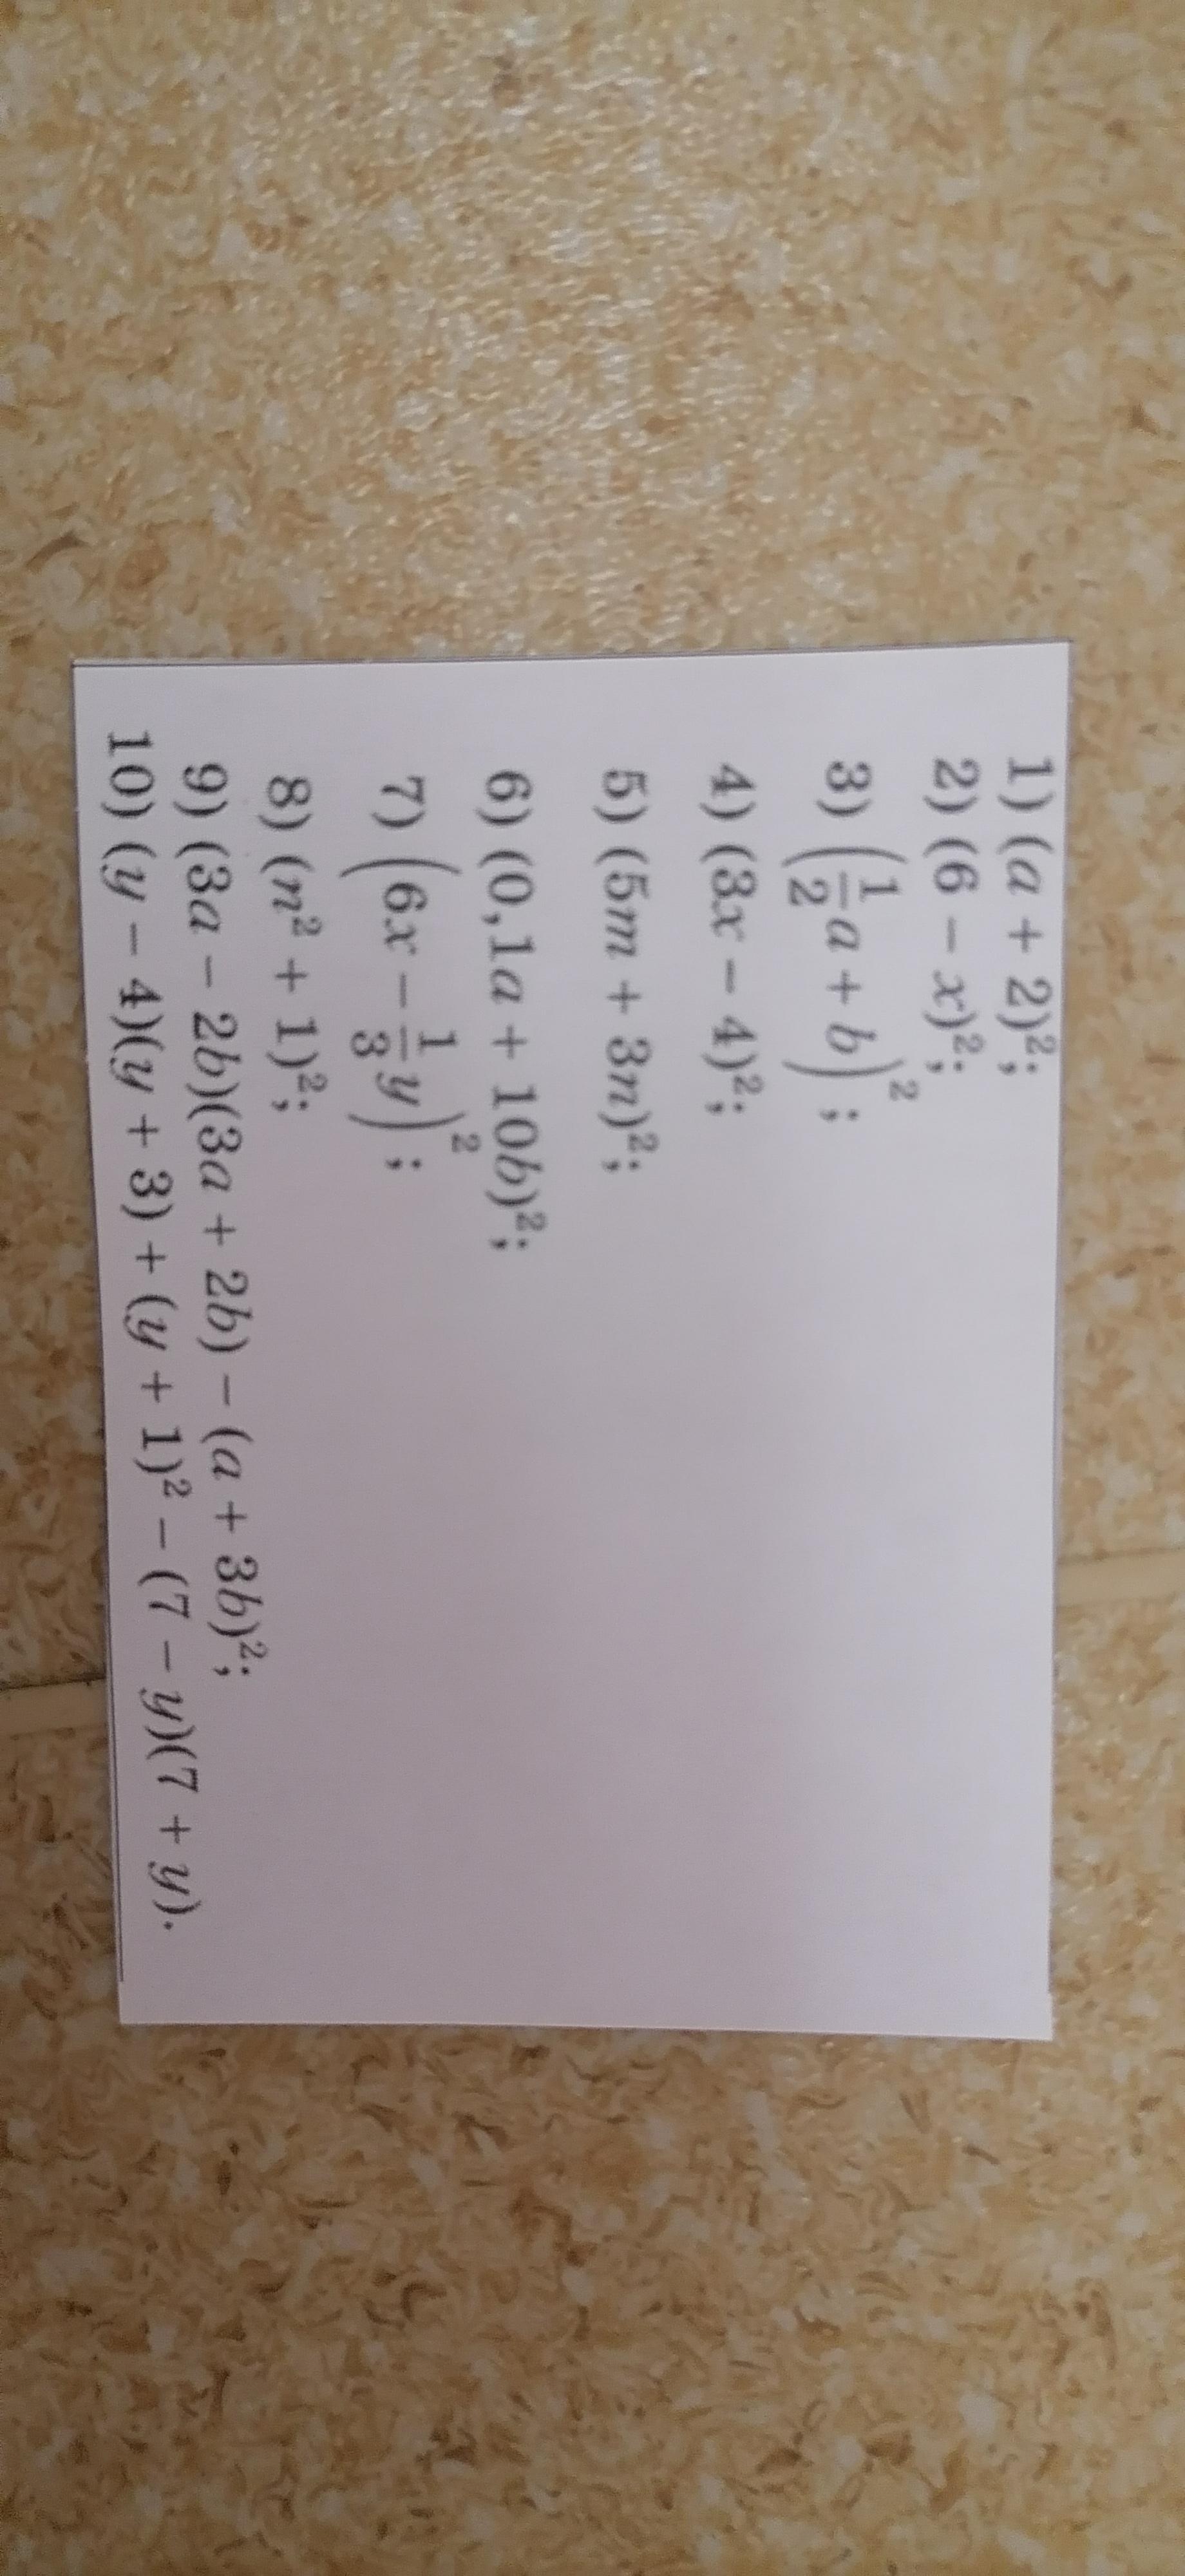 1) (a + 2)²;
2) (6 − x)²;
3) (1/2 a + b)²;
4) (3x − 4)²;
5) (5m + 3n)²;
6) (0,1a + 10b)²;
7) (6x − 1/3 y)²;
8) (n² + 1)²;
9) (3a − 2b)(3a + 2b) − (a + 3b)²;
10) (y − 4)(y + 3) + (y + 1)² − (7 − y)(7 + y).